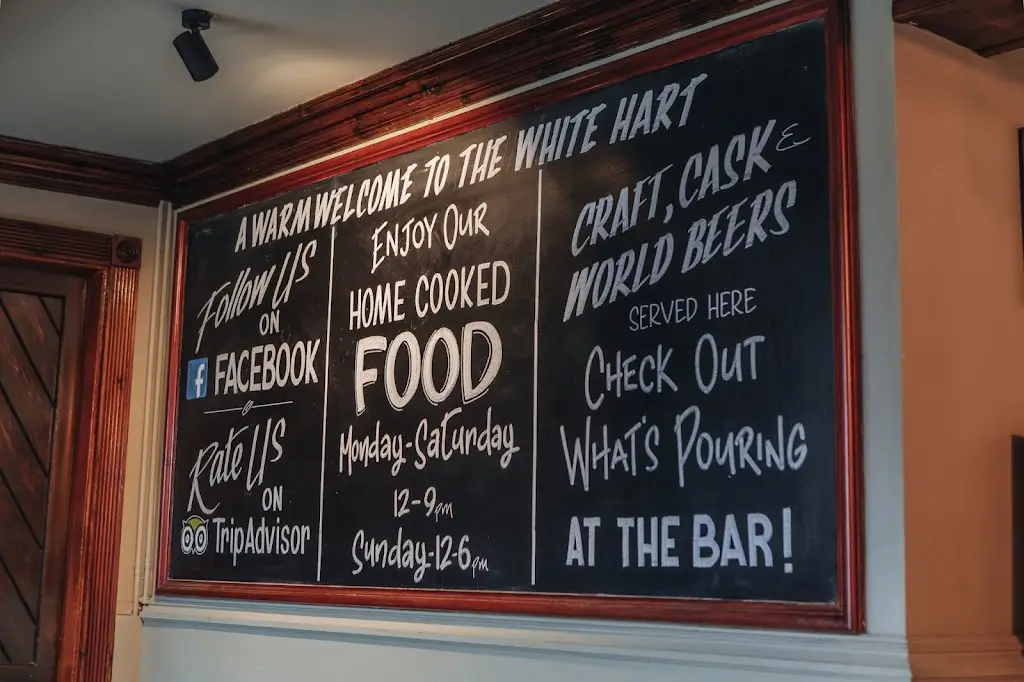 A WARM WELCOME TO THE WHITE HART
Follow US
ON
f FACEBOOK
Rate US
ON
TripAdvisor
ENJOY OUR
HOME COOKED
FOOD
Monday-Saturday
12-9pm
Sunday-12-6pm
CRAFT, CASK &
WORLD BEERS
SERVED HERE
CHECK OUT
WHAT'S POURING
AT THE BAR!